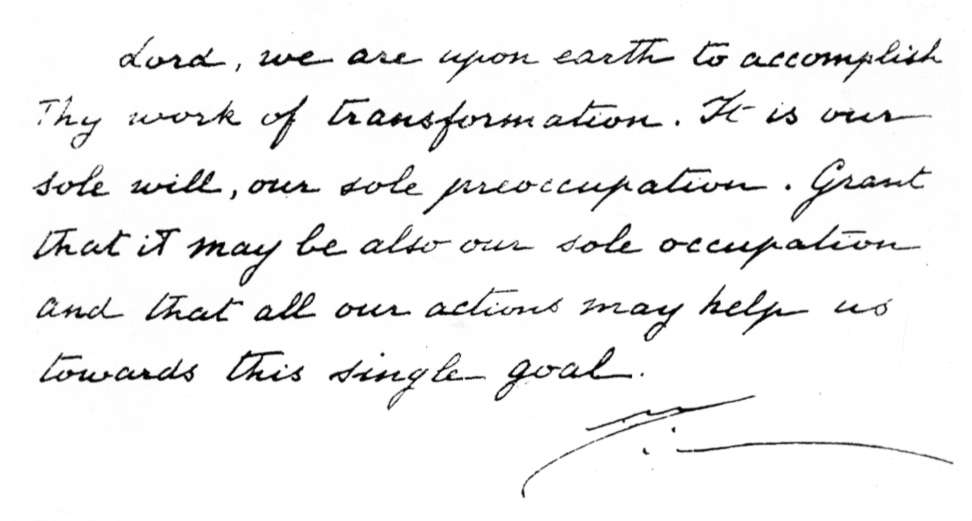 Lord, we are upon earth to accomplish
Thy work of transformation. It is our
sole will, our sole preoccupation. Grant
that it may be also our sole occupation
and that all our actions may help us
towards this single goal.